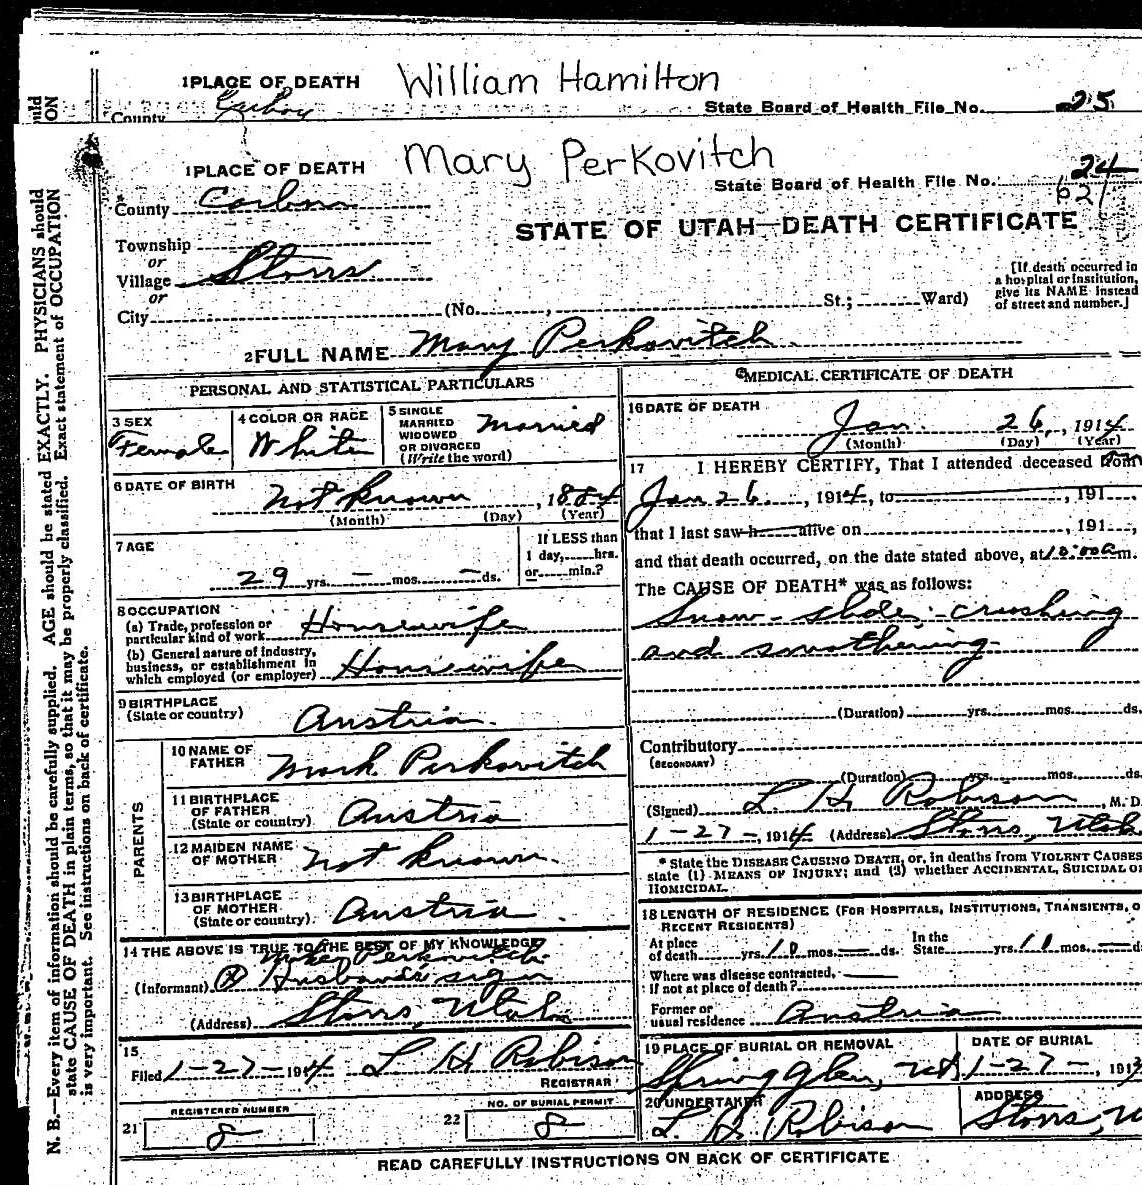 1 PLACE OF DEATH William Hamilton
County
State Board of Health File No. 25
1 PLACE OF DEATH Mary Perkovitch
State Board of Health File No. 24
621
County Carbon
STATE OF UTAH—DEATH CERTIFICATE
Township
or
Village Storrs
or
City (No. , St.; Ward)
[If death occurred in
a hospital or institution,
give its NAME instead
of street and number.]
2 FULL NAME Mary Perkovitch
PERSONAL AND STATISTICAL PARTICULARS
3 SEX
Female
4 COLOR OR RACE
White
5 SINGLE
MARRIED
WIDOWED
OR DIVORCED
(Write the word)
Married
6 DATE OF BIRTH
Not known , 1884
(Month) (Day) (Year)
7 AGE
29 yrs. — mos. — ds.
If LESS than
1 day, hrs.
or min.?
8 OCCUPATION
(a) Trade, profession or
particular kind of work Housewife
(b) General nature of industry,
business, or establishment in
which employed (or employer) Housewife
9 BIRTHPLACE
(State or country) Austria
PARENTS
10 NAME OF
FATHER Mark Perkovitch
11 BIRTHPLACE
OF FATHER
(State or country) Austria
12 MAIDEN NAME
OF MOTHER Not known
13 BIRTHPLACE
OF MOTHER
(State or country) Austria
14 THE ABOVE IS TRUE TO THE BEST OF MY KNOWLEDGE
Perkovitch
(Informant) X Husbands sign
(Address) Storrs, Utah
15
Filed 1-27-1914 L H Robison
REGISTRAR
21 REGISTERED NUMBER
8
22 NO. OF BURIAL PERMIT
8
MEDICAL CERTIFICATE OF DEATH
16 DATE OF DEATH
Jan. 26, , 1914
(Month) (Day) (Year)
17 I HEREBY CERTIFY, That I attended deceased from
Jan 26 , 1914, to , 191 ,
that I last saw h alive on , 191 ,
and that death occurred, on the date stated above, at 10:00 a m.
The CAUSE OF DEATH* was as follows:
Snow-slide; crushing
and smothering
(Duration) yrs. mos. ds.
Contributory
(SECONDARY)
(Duration) yrs. mos. ds.
(Signed) L. H. Robison , M. D.
1-27-, 1914 (Address) Storrs, Utah
* State the DISEASE CAUSING DEATH, or, in deaths from VIOLENT CAUSES
state (1) MEANS OF INJURY; and (2) whether ACCIDENTAL, SUICIDAL OR
HOMICIDAL.
18 LENGTH OF RESIDENCE (FOR HOSPITALS, INSTITUTIONS, TRANSIENTS, O
RECENT RESIDENTS)
At place
of death yrs. 10 mos. — ds.
In the
State yrs. 10 mos. — ds
Where was disease contracted,
if not at place of death?
Former or
usual residence Austria
19 PLACE OF BURIAL OR REMOVAL
Spring Glen, Ut
DATE OF BURIAL
1-27-, 191
20 UNDERTAKER
L. H. Robison
ADDRESS
Storrs, U
READ CAREFULLY INSTRUCTIONS ON BACK OF CERTIFICATE
N. B.—Every item of information should be carefully supplied. AGE should be stated EXACTLY. PHYSICIANS should
state CAUSE OF DEATH in plain terms, so that it may be properly classified. Exact statement of OCCUPATION
is very important. See instructions on back of certificate.